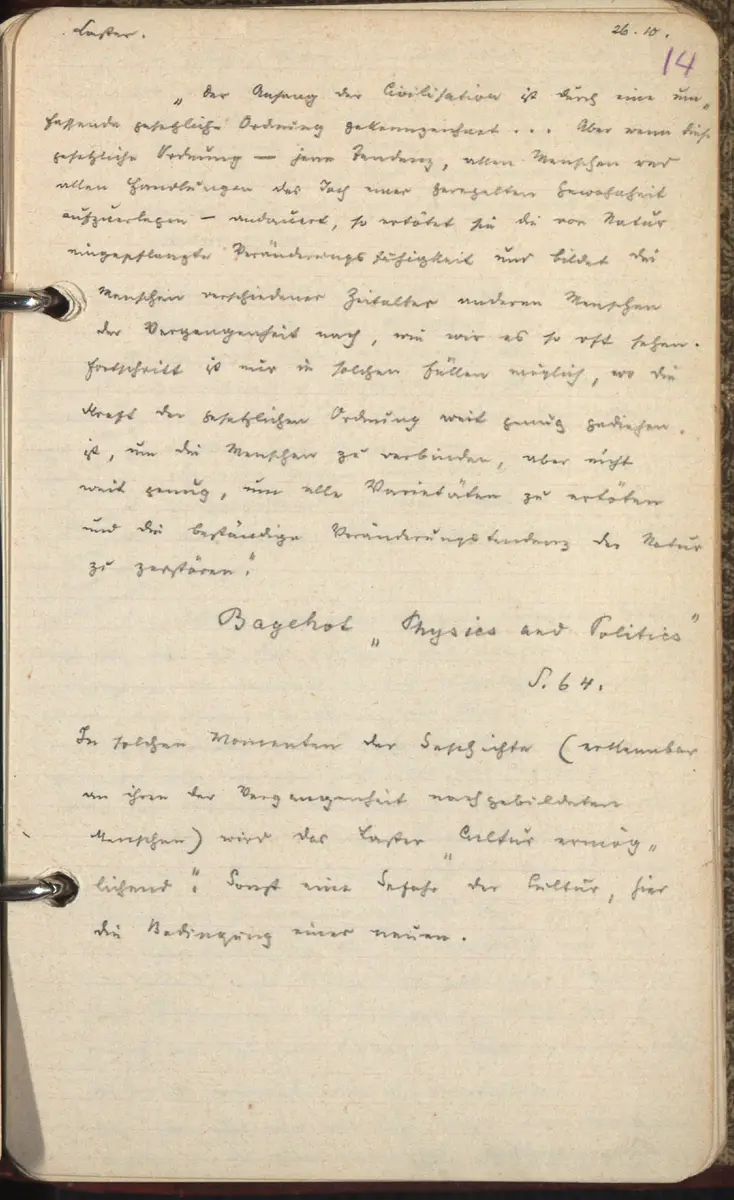 Laster. 26.10.
14
„Der Anfang der Civilisation ist durch eine um„
fassende gesetzliche Ordnung gekennzeichnet... Aber wenn diese
gesetzliche Ordnung — jene Tendenz, allen Menschen und
allen Handlungen das Joch einer geregelten Gewohnheit
aufzuerlegen — andauert, so ertötet sie die von Natur
eingepflanzte Veränderungsfähigkeit und bildet die
Menschen verschiedener Zeitalter anderen Menschen
der Vergangenheit nach, wie wir es so oft sehen.
Fortschritt ist nur in solchen Fällen möglich, wo die
Kraft der gesetzlichen Ordnung weit genug gediehen
ist, um die Menschen zu verbinden, aber nicht
weit genug, um alle Varietäten zu ertöten
und die beständige Veränderungstendenz der Natur
zu zerstören."
Bagehot „Physics and Politics"
S. 64.
In solchen Momenten der Geschichte (erkennbar
an ihren der Vergangenheit nachgebildeten
Menschen) wird das Laster „Cultur ermög„
lichend". Sonst eine Gefahr der Cultur, hier
die Bedingung einer neuen.